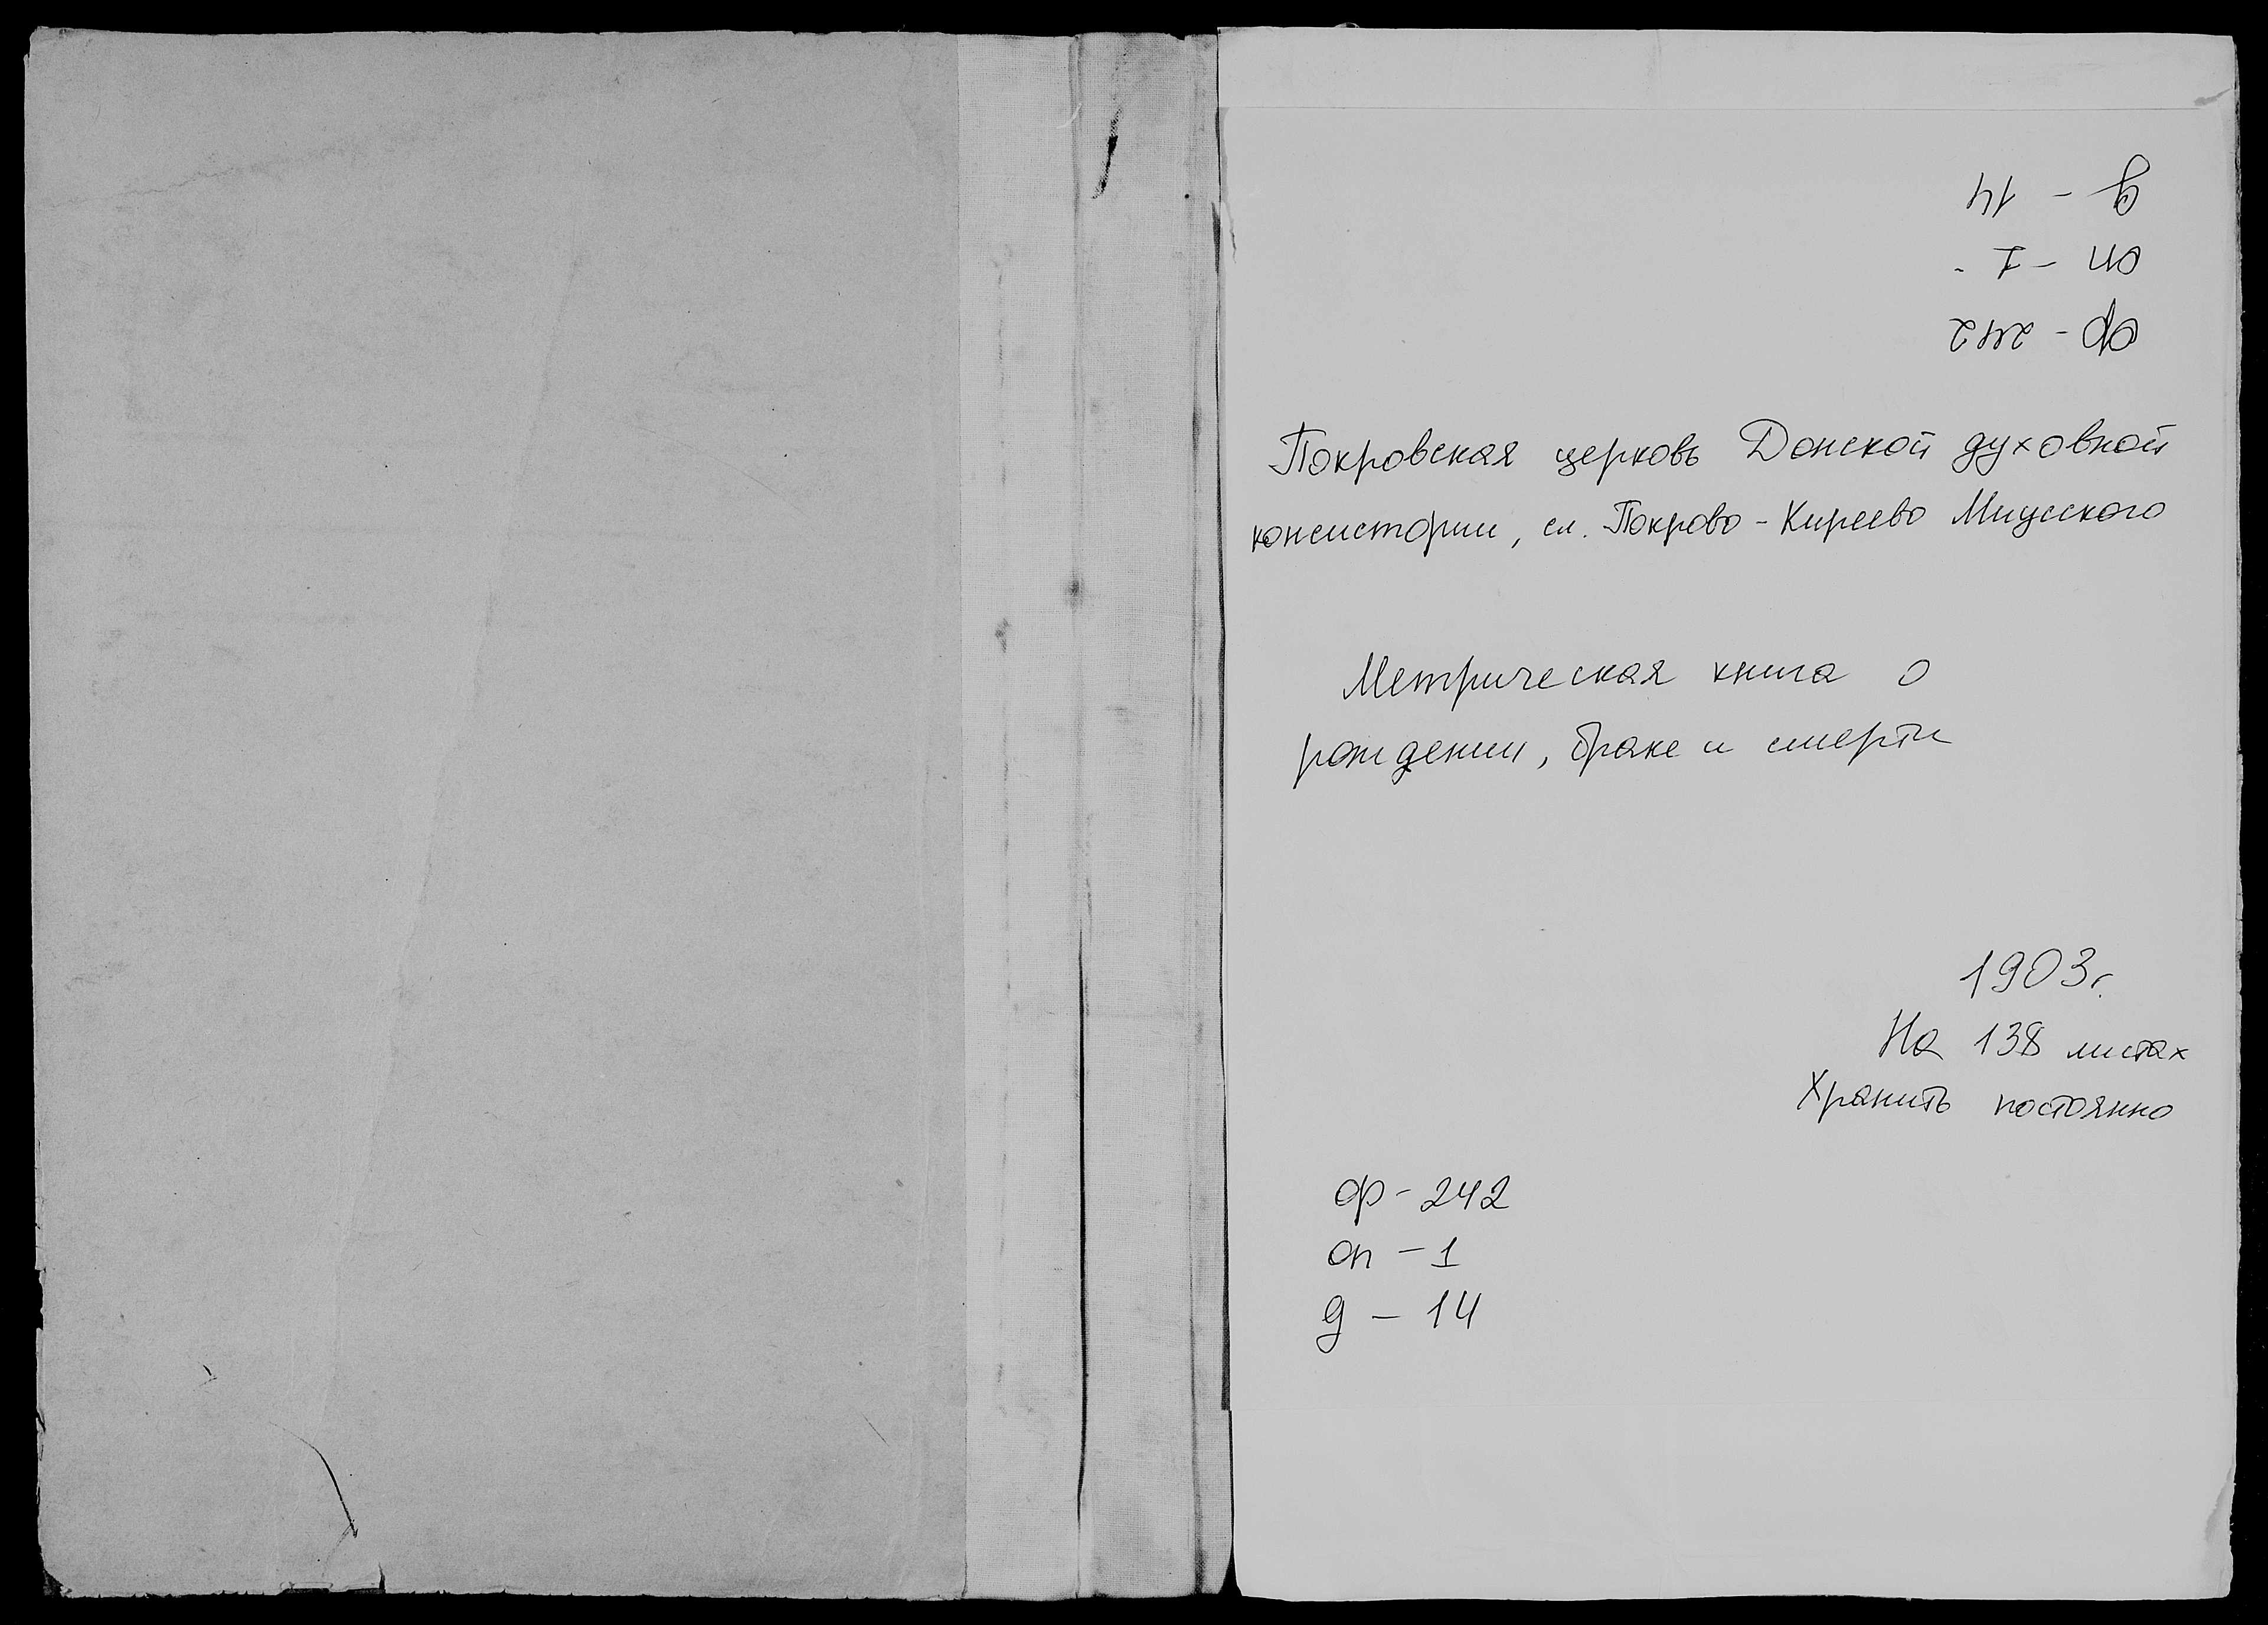 ф - 242
оп - 1
д - 14
Покровская церковь Донской духовной
консистории, сл. Покрово - Киреево Миусского
Метрическая книга о
рождении, браке и смерти
1903г.
На 138 листах
Хранить постоянно
ф - 242
оп - 1
д - 14